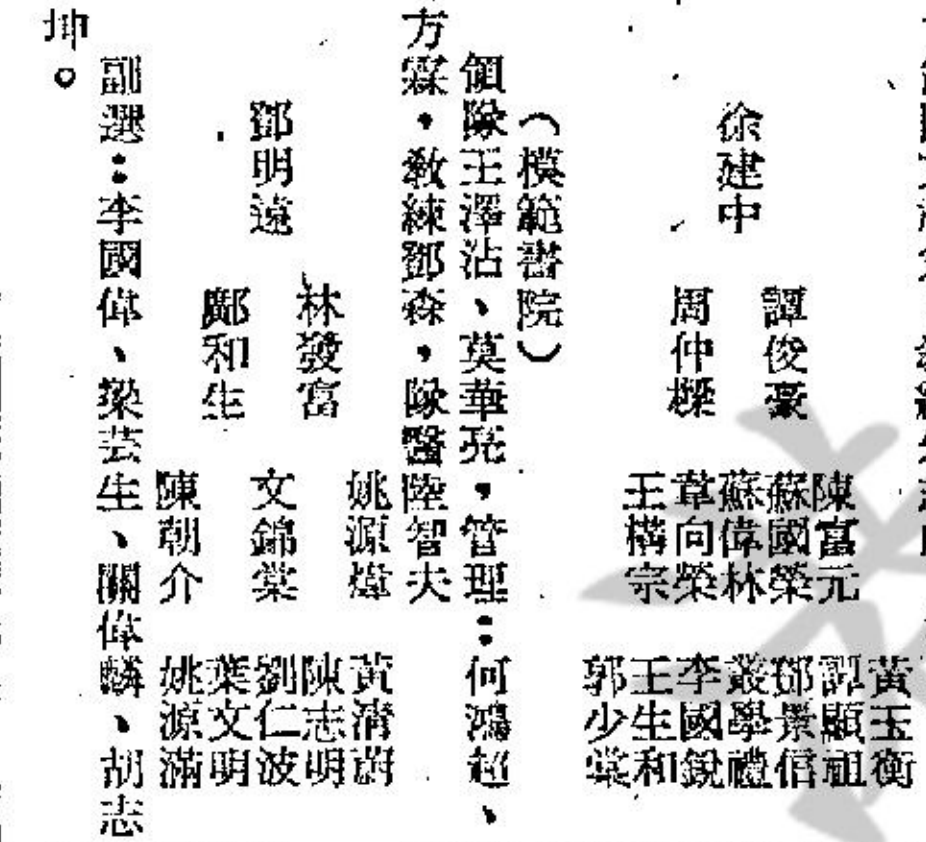 徐建中
譚俊豪
周仲樑
陳富元
蘇國榮
蘇偉林
韋向榮
王構宗
黃玉衡
譚顯祖
鄧景信
叢學禮
李國銳
王生和
郭少棠
（模範書院）
領隊王澤沾、莫華亮，管理：何鴻超、
方霖，敎練鄧森，隊醫陸智夫
鄧明遠
林發富
鄺和生
姚源煒
文錦棠
陳朝介
黃淸蔚
陳志明
劉仁波
葉文明
姚源滿
副選：李國偉、梁芸生、關偉麟、胡志
坤。